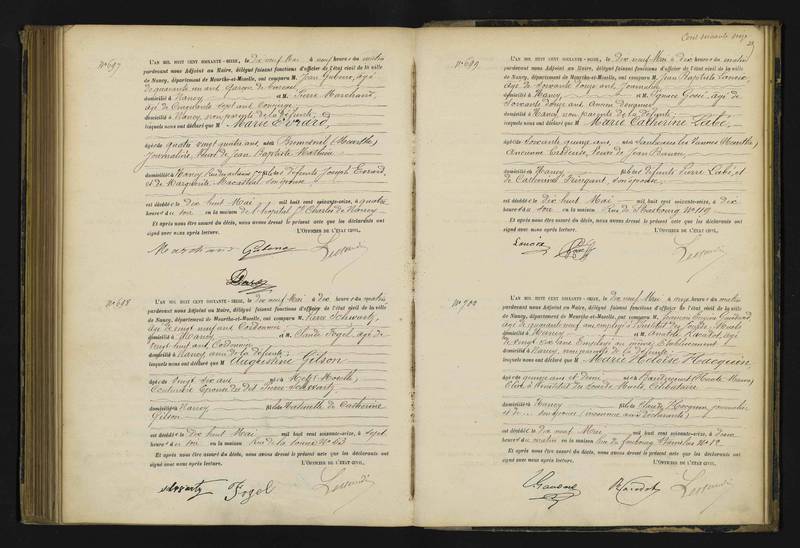 N° 697
L'AN MIL HUIT CENT SOIXANTE-SEIZE, le dix neuf Mai à neuf heures du matin
pardevant nous Adjoint au Maire, délégué faisant fonctions d'officier de l'état civil de la ville
de Nancy, département de Meurthe-et-Moselle, ont comparu M. Jean agé
de quarante un ans garçon de
domicilié à Nancy et M. Pierre Marchand,
agé de Cinquante sept ans
domicilié à Nancy, non parents de la défunte,
lesquels nous ont déclaré que Marie Evrard,
agée de quatre vingt quatre ans, née à (Meurthe)
Journalière, Veuve de Jean Baptiste Mathieu
domiciliée à Nancy fille de défunts Joseph Evrard,
et de Marguerite son épouse
est décédée le dix huit Mai mil huit cent soixante-seize, à quatre
heures du soir en la maison de l'hôpital St Charles de Nancy
Et après nous être assuré du décès, nous avons dressé le présent acte que les déclarants ont
signé avec nous après lecture. L'OFFICIER DE L'ÉTAT CIVIL,
Marchand
N° 698
L'AN MIL HUIT CENT SOIXANTE-SEIZE, le dix neuf Mai à dix heures du matin
pardevant nous Adjoint au Maire, délégué faisant fonctions d'officier de l'état civil de la ville
de Nancy, département de Meurthe-et-Moselle, ont comparu M. Pierre Schwartz,
agé de vingt neuf ans Cordonnier
domicilié à Nancy et M. Claude Fogel, agé de
vingt huit ans Cordonnier
domicilié à Nancy, amis de la défunte,
lesquels nous ont déclaré que Augustine Gitson
agée de vingt six ans née à Metz (Moselle)
Couturière Epouse du dit Pierre Schwartz
domiciliée à Nancy fille de Catherine
Gitson
est décédée le dix huit Mai mil huit cent soixante-seize, à sept
heures du soir en la maison Rue de la N° 63
Et après nous être assuré du décès, nous avons dressé le présent acte que les déclarants ont
signé avec nous après lecture. L'OFFICIER DE L'ÉTAT CIVIL,
Schwartz Fogel
Cent soixante onze
N° 699
L'AN MIL HUIT CENT SOIXANTE-SEIZE, le dix neuf Mai à dix heures du matin
pardevant nous Adjoint au Maire, délégué faisant fonctions d'officier de l'état civil de la ville
de Nancy, département de Meurthe-et-Moselle, ont comparu M. Jean Baptiste
agé de Soixante douze ans Journalier
domicilié à Nancy et M. Ignace agé de
Soixante douze ans Ancien Douanier
domicilié à Nancy, non parents de la défunte,
lesquels nous ont déclaré que Marie Catherine Labé,
agée de soixante quinze ans, née à (Meurthe)
Ancienne Veuve de Jean
domiciliée à Nancy fille de défunts Pierre Labé et
de Catherine son épouse
est décédée le dix huit Mai mil huit cent soixante-seize, à dix
heures du soir en la maison Rue de Strasbourg N° 119
Et après nous être assuré du décès, nous avons dressé le présent acte que les déclarants ont
signé avec nous après lecture. L'OFFICIER DE L'ÉTAT CIVIL,
N° 700
L'AN MIL HUIT CENT SOIXANTE-SEIZE, le dix neuf Mai à onze heures du matin
pardevant nous Adjoint au Maire, délégué faisant fonctions d'officier de l'état civil de la ville
de Nancy, département de Meurthe-et-Moselle, ont comparu M. François
agé de quarante neuf ans employé à l'Institut des Sourds-Muets
domicilié à Nancy et M. Anatole agé
de vingt six ans Employé au même Etablissement
domicilié à Nancy, non parents de la défunte,
lesquels nous ont déclaré que Marie Héloïse Hacquin,
agée de quinze ans et Demi née à (Haute Marne)
Elève à l'Institut des Sourds-Muets, Célibataire
domiciliée à Nancy fille de Claude Hacquin, journalier
et de son épouse (inconnue aux déclarants)
est décédée le dix neuf Mai mil huit cent soixante-seize, à deux
heures du matin en la maison Rue du faubourg Stanislas N° 12
Et après nous être assuré du décès, nous avons dressé le présent acte que les déclarants ont
signé avec nous après lecture. L'OFFICIER DE L'ÉTAT CIVIL,